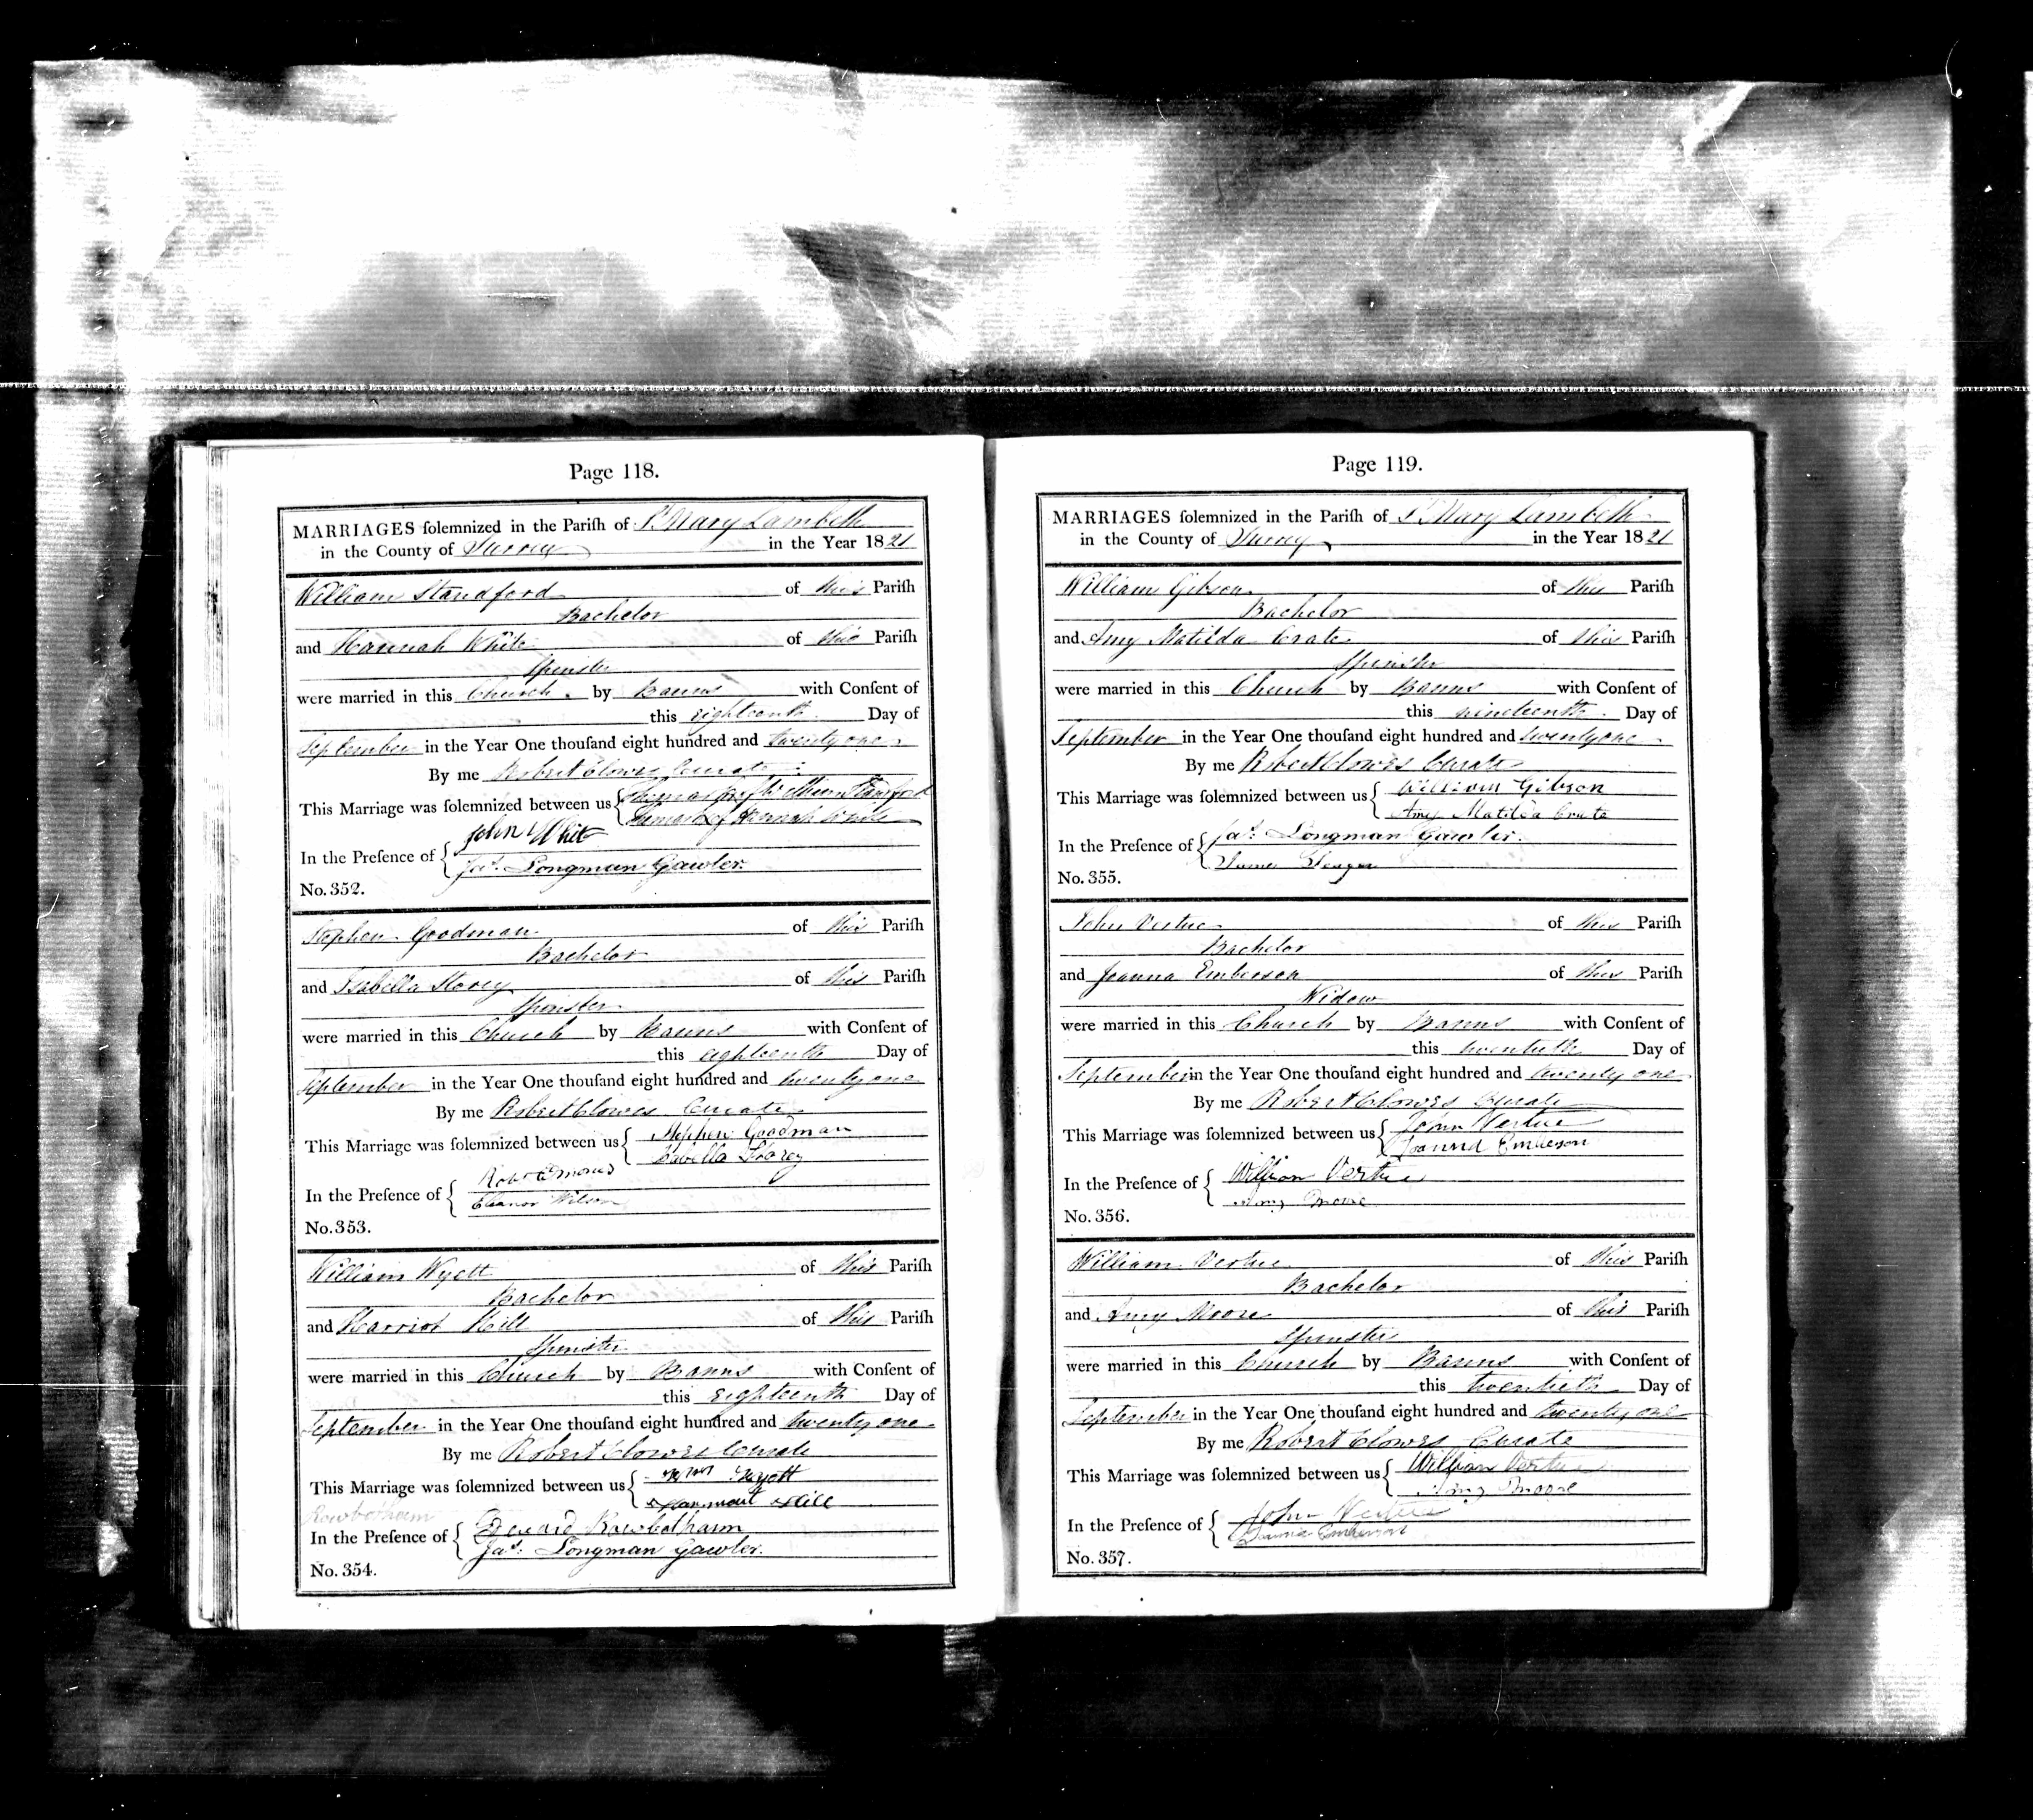 Page 118.
MARRIAGES ſolemnized in the Pariſh of St Mary Lambeth
in the County of Surrey in the Year 1821
William Standford of this Pariſh
Bachelor
and Hannah White of this Pariſh
Spinster
were married in this Church by Banns with Conſent of
this eighteenth Day of
September in the Year One thouſand eight hundred and twenty one
By me Robert Clowes Curate
This Marriage was ſolemnized between us { The mark of William Standford
The mark of Hannah White
John White
In the Preſence of { Jas. Longman Gawler.
No. 352.
Stephen Goodman of this Pariſh
Bachelor
and Isabella Storey of this Pariſh
Spinster
were married in this Church by Banns with Conſent of
this eighteenth Day of
September in the Year One thouſand eight hundred and twenty one
By me Robert Clowes Curate
This Marriage was ſolemnized between us { Stephen Goodman
Isabella Storey
In the Preſence of {
Eleanor Wilson
No. 353.
William Wyott of this Pariſh
Bachelor
and Harriot Hill of this Pariſh
Spinster
were married in this Church by Banns with Conſent of
this eighteenth Day of
September in the Year One thouſand eight hundred and twenty one
By me Robert Clowes Curate
This Marriage was ſolemnized between us { Wyott
Hill
Rowbotham
In the Preſence of { Edward Rowbotham
Jas. Longman Gawler.
No. 354.
Page 119.
MARRIAGES ſolemnized in the Pariſh of St Mary Lambeth
in the County of Surrey in the Year 1821
William Gibson of this Pariſh
Bachelor
and Amy Matilda Crate of this Pariſh
Spinster
were married in this Church by Banns with Conſent of
this nineteenth Day of
September in the Year One thouſand eight hundred and twenty one
By me Robert Clowes Curate
This Marriage was ſolemnized between us { William Gibson
Amy Matilda Crate
In the Preſence of { Jas. Longman Gawler.
James
No. 355.
John Vertue of this Pariſh
Bachelor
and Joanna Emberson of this Pariſh
Widow
were married in this Church by Banns with Conſent of
this twentieth Day of
September in the Year One thouſand eight hundred and twenty one
By me Robert Clowes Curate
This Marriage was ſolemnized between us { John Vertue
Joanna Emberson
In the Preſence of { William Vertue
Amy Moore
No. 356.
William Vertue of this Pariſh
Bachelor
and Amy Moore of this Pariſh
Spinster
were married in this Church by Banns with Conſent of
this twentieth Day of
September in the Year One thouſand eight hundred and twenty one
By me Robert Clowes Curate
This Marriage was ſolemnized between us { William Vertue
Amy Moore
In the Preſence of { John Vertue
Joanna Emberson
No. 357.